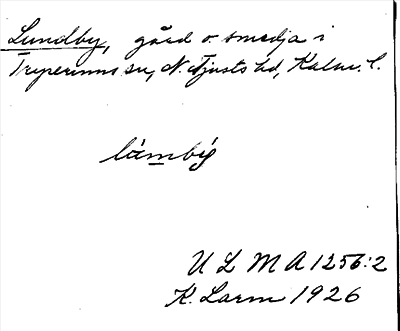 Lundby, gård o. smedja i
Tryserums sn, N. Tjusts hd, Kalm. l.
làmbý
U L M A 1256:2
K. Larm 1926